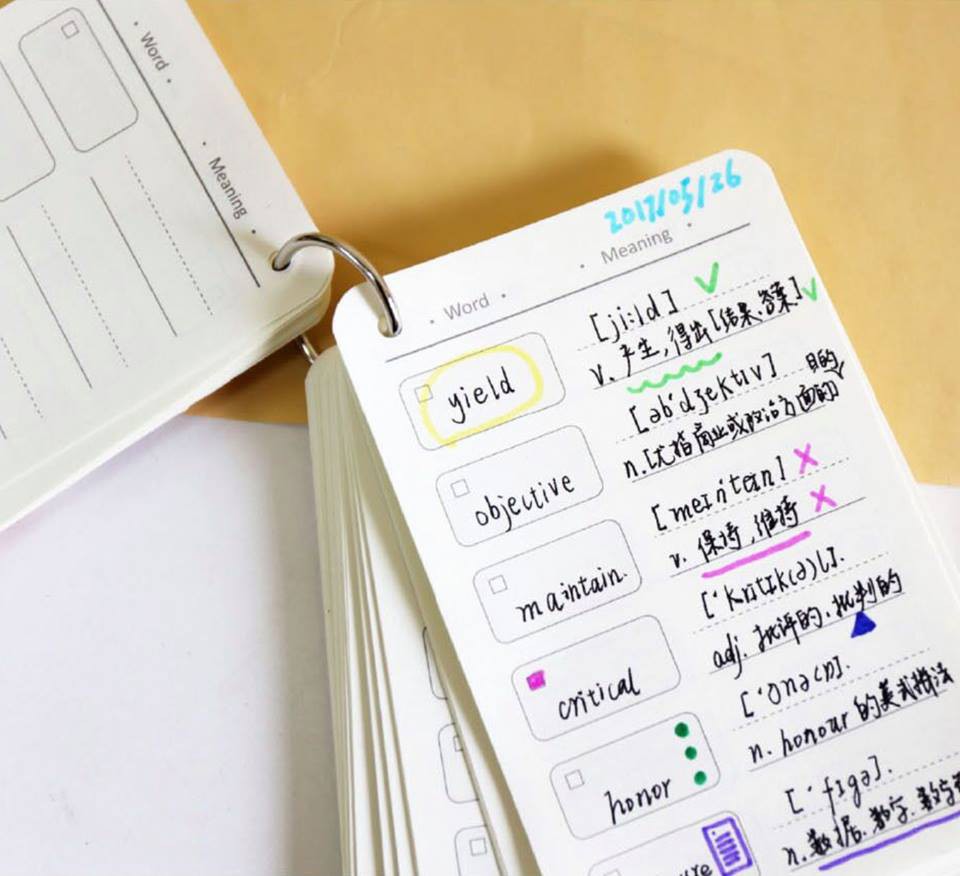 Word
Meaning
2017/05/26
Word
Meaning
yield
[ji:ld]
v. 产生,得出[结果、答案]
objective
[əb'dʒektiv] 目的
n.[尤指商业或政治方面的
maintain.
[meɪn'teɪn]
v. 保持,维持
critical
['krɪtɪk(ə)l].
adj. 批评的,批判的
honor
['ɒnə(r)].
n. honour 的美式拼法
['fɪgə].
n.数据.数字.数字